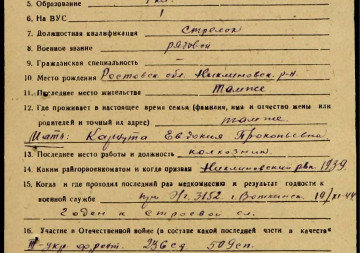 5. Образование
6. На ВУС 1
7. Должностная квалификация стрелок
8. Военное звание рядовой
9. Гражданская специальность –
10. Место рождения Ростовск. обл. р-н.
11. Последнее место жительства Также
12. Где проживает в настоящее время семья (фамилия, имя и отчество жены или
родителей и точный их адрес) также
Мать: Евдокия Прокопьевна
13. Последнее место работы и должность колхозник
14. Каким райгорвоенкоматом и когда призван рвк 1939
15. Когда и где проходил последний раз медкомиссию и результат годности к
военной службе 3152 г. Воткинск 19/XI-44
Годен к строевой сл.
16. Участие в Отечественной войне (в составе какой последней части в качестве
укр. фронт. 236 сд 509 сп.